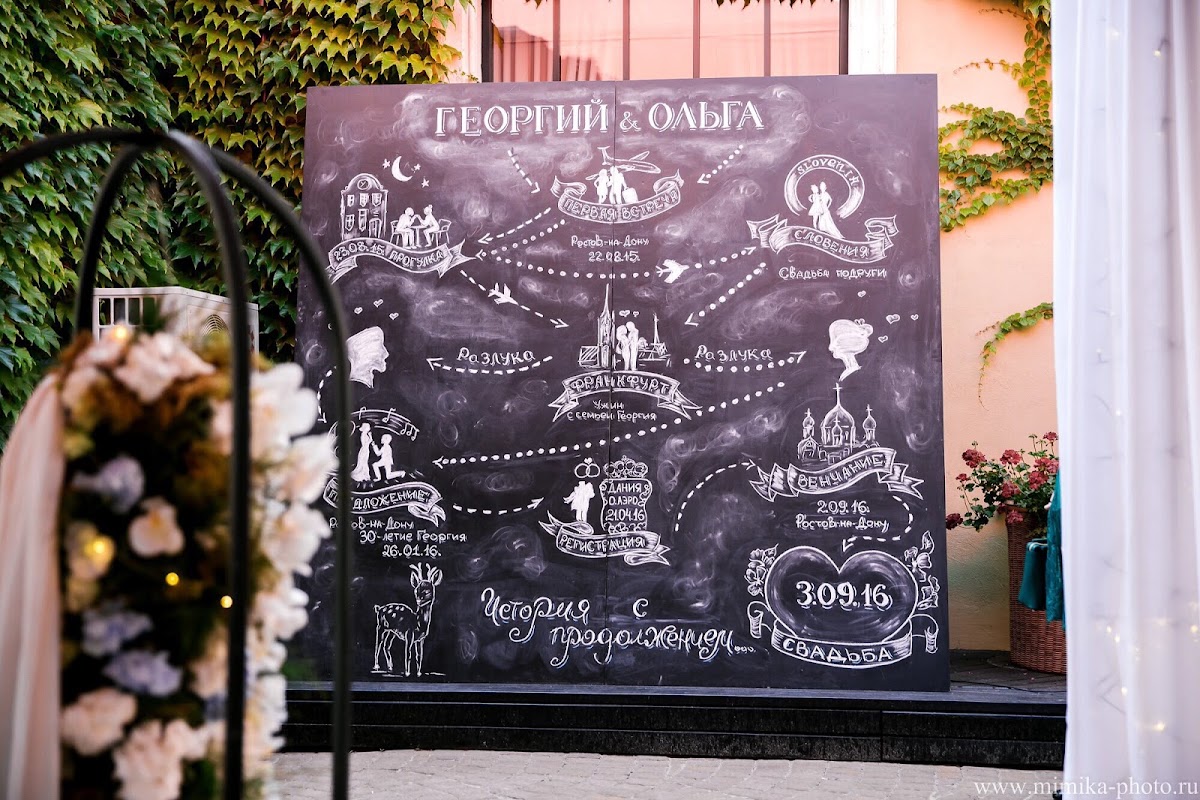 ГЕОРГИЙ & ОЛЬГА
ПЕРВАЯ ВСТРЕЧА
Ростов-на-Дону
22.08.15.
23.08.15. ПРОГУЛКА
SLOVENIA
СЛОВЕНИЯ
СВАДЬБА ПОДРУГИ
РАЗЛУКА
ФРАНКФУРТ
УЖИН
С СЕМЬЕЙ ГЕОРГИЯ
РАЗЛУКА
ВЕНЧАНИЕ
2.09.16.
Ростов-на-Дону
ДАНИЯ
О.АЭРО
21.04.16
РЕГИСТРАЦИЯ
30-ЛЕТИЕ ГЕОРГИЯ
26.01.16.
ИСТОРИЯ С
ПРОДОЛЖЕНИЕМ...
3.09.16
СВАДЬБА
www.mimika-photo.ru